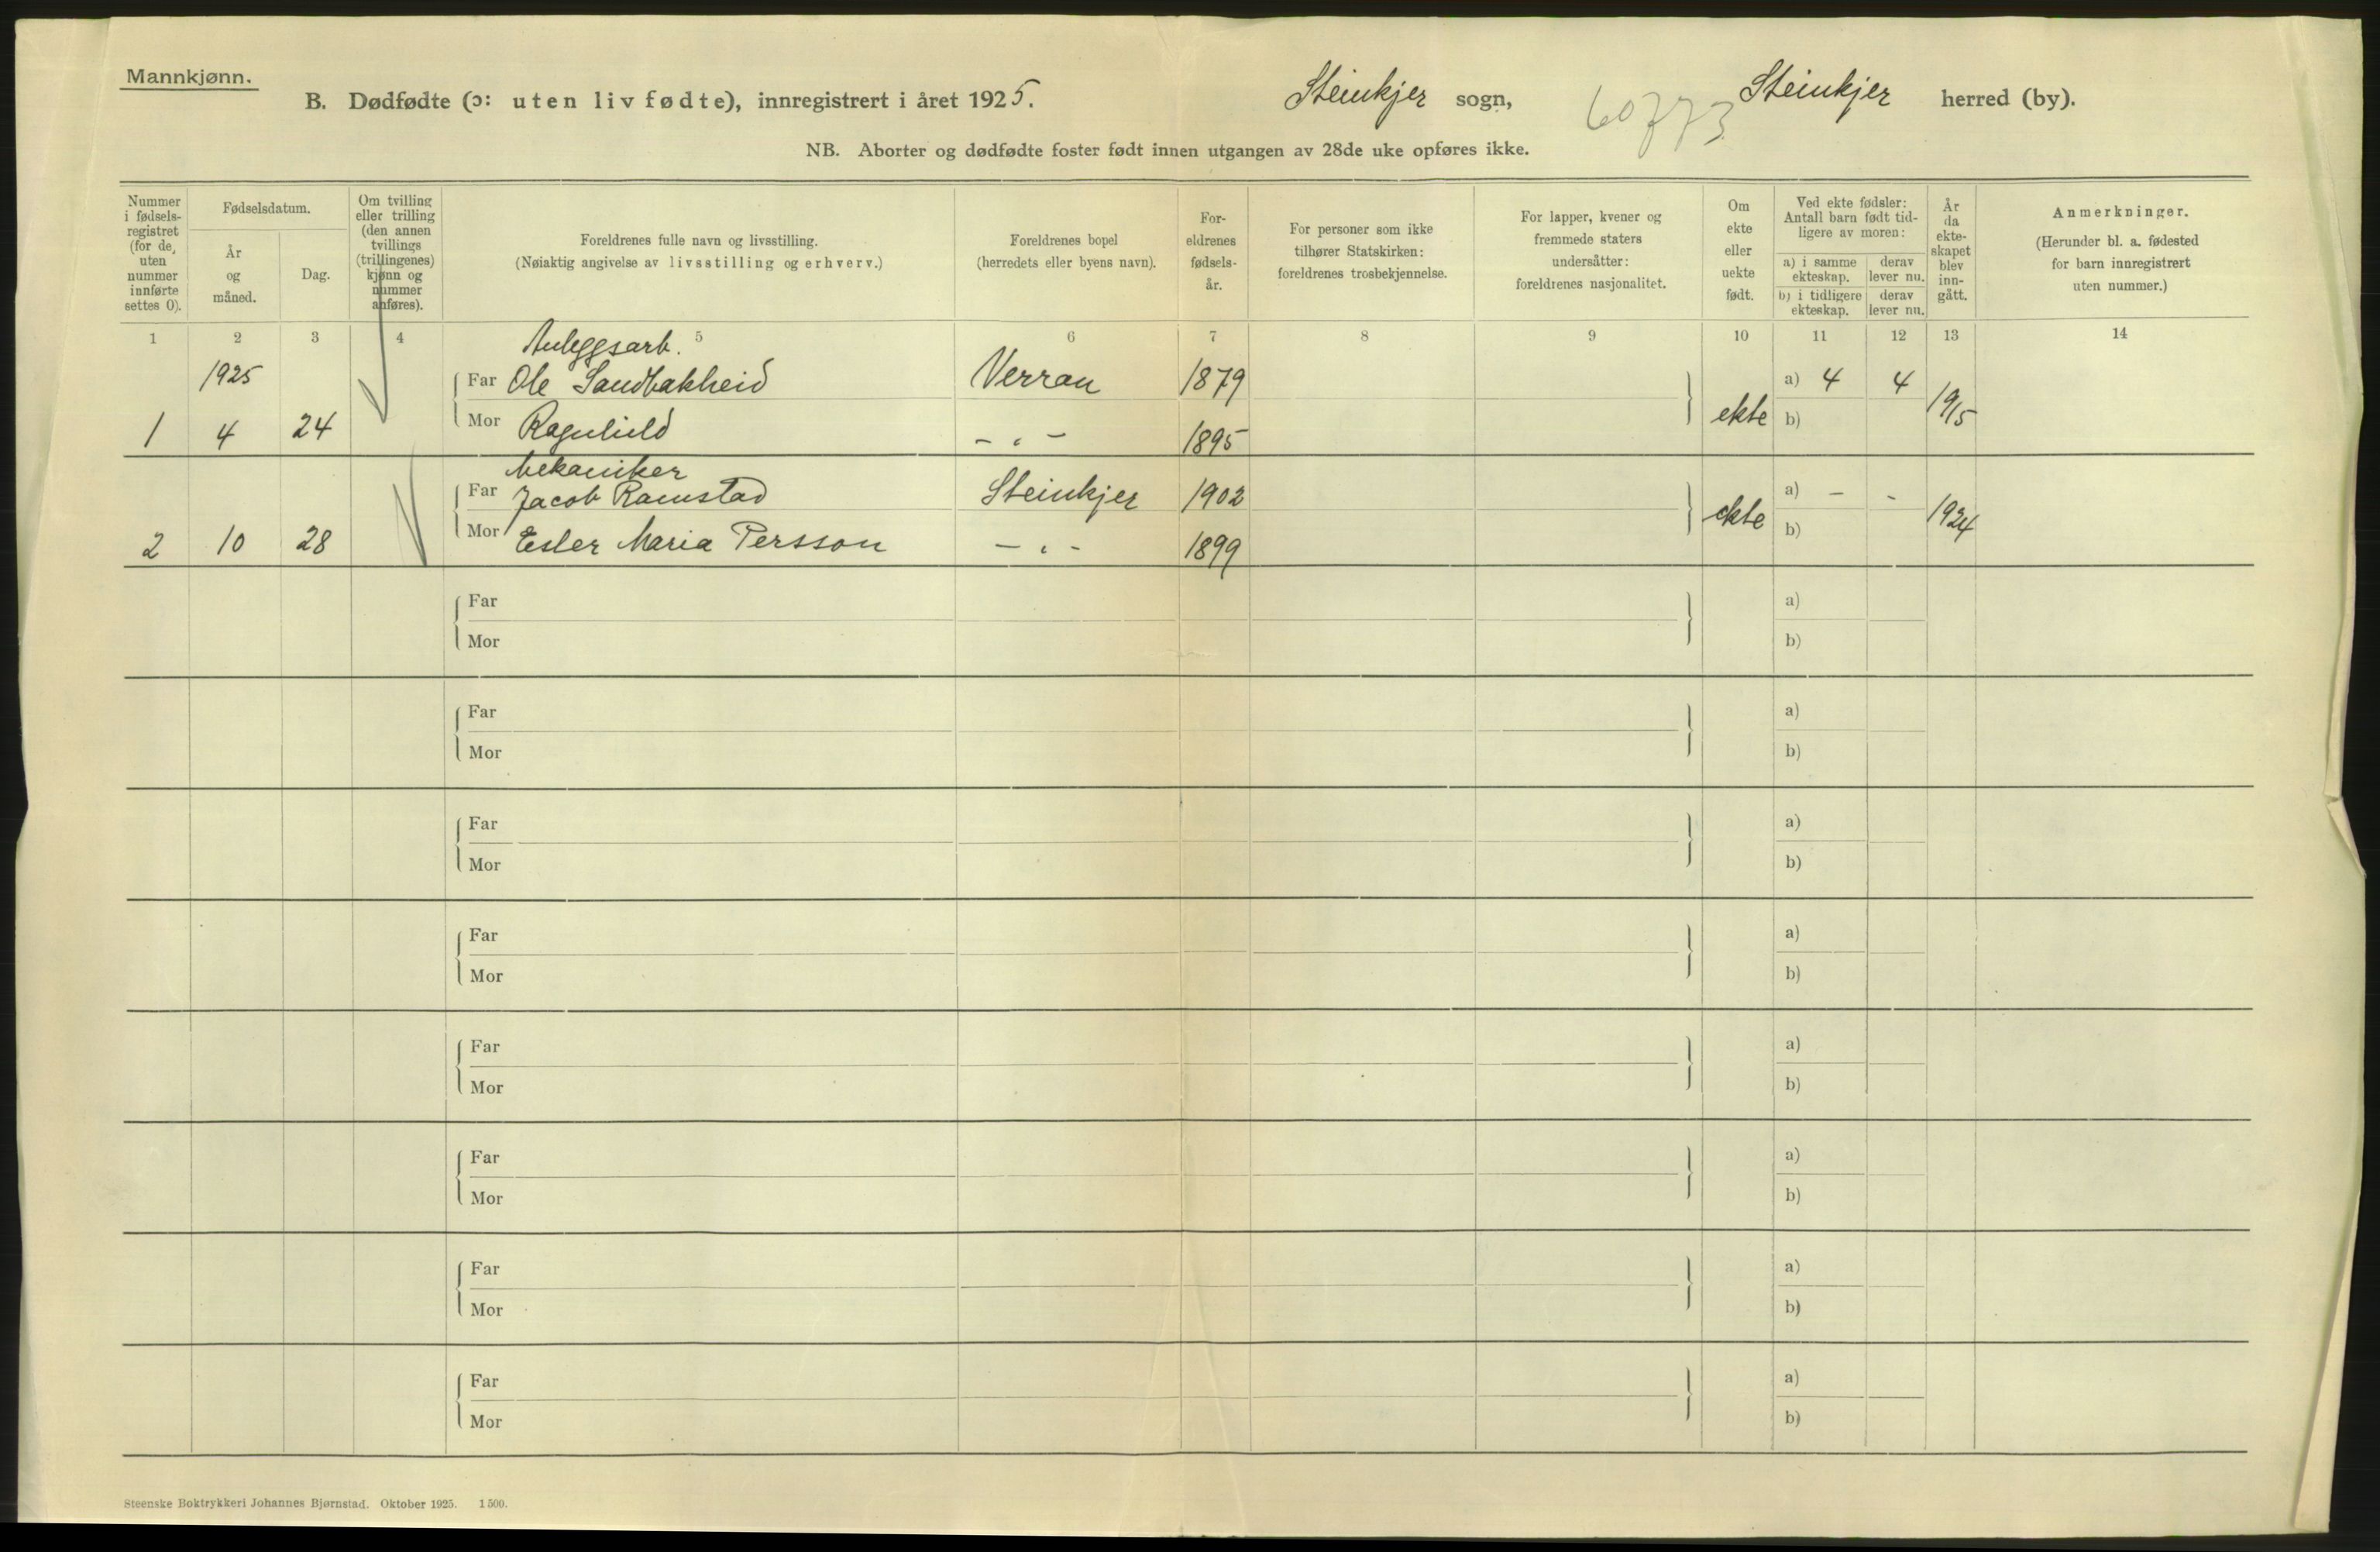 Mannkjønn.
B. Dødfødte (ɔ: uten liv fødte), innregistrert i året 1925. Steinkjer sogn, Steinkjer herred (by).
60773
NB. Aborter og dødfødte foster født innen utgangen av 28de uke opføres ikke.
Nummer
i fødsels-
registret
(for de
uten
nummer
innførte
settes 0).
Fødselsdatum.
År
og
måned.
Dag.
Om tvilling
eller trilling
(den annen
tvillings
(trillingenes)
kjønn og
nummer
anføres).
Foreldrenes fulle navn og livsstilling.
(Nøiaktig angivelse av livsstilling og erhverv.)
Foreldrenes bopel
(herredets eller byens navn).
For-
eldrenes
fødsels-
år.
For personer som ikke
tilhører Statskirken:
foreldrenes trosbekjennelse.
For lapper, kvener og
fremmede staters
undersåtter:
foreldrenes nasjonalitet.
Om
ekte
eller
uekte
født.
Ved ekte fødsler:
Antall barn født tid-
ligere av moren:
a) i samme
ekteskap.
derav
lever nu.
b) i tidligere
ekteskap.
derav
lever nu.
År
da
ekte-
skapet
blev
inn-
gått.
Anmerkninger.
(Herunder bl. a. fødested
for barn innregistrert
uten nummer.)
1 2 3 4 5 6 7 8 9 10 11 12 13 14
Anleggsarb.
1925 Far Ole Sandbakheid Verran 1879 a) 4 4
1 4 24 Mor Ragnhild - " - 1895 ekte b) 1915
Mekaniker
Far Jacob Ramstad Steinkjer 1902 a) - -
2 10 28 Mor Esler Maria Persson - " - 1899 ekte b) 1924
Far a)
Mor b)
Far a)
Mor b)
Far a)
Mor b)
Far a)
Mor b)
Far a)
Mor b)
Far a)
Mor b)
Far a)
Mor b)
Far a)
Mor b)
Steenske Boktrykkeri Johannes Bjørnstad. Oktober 1925. 1500.